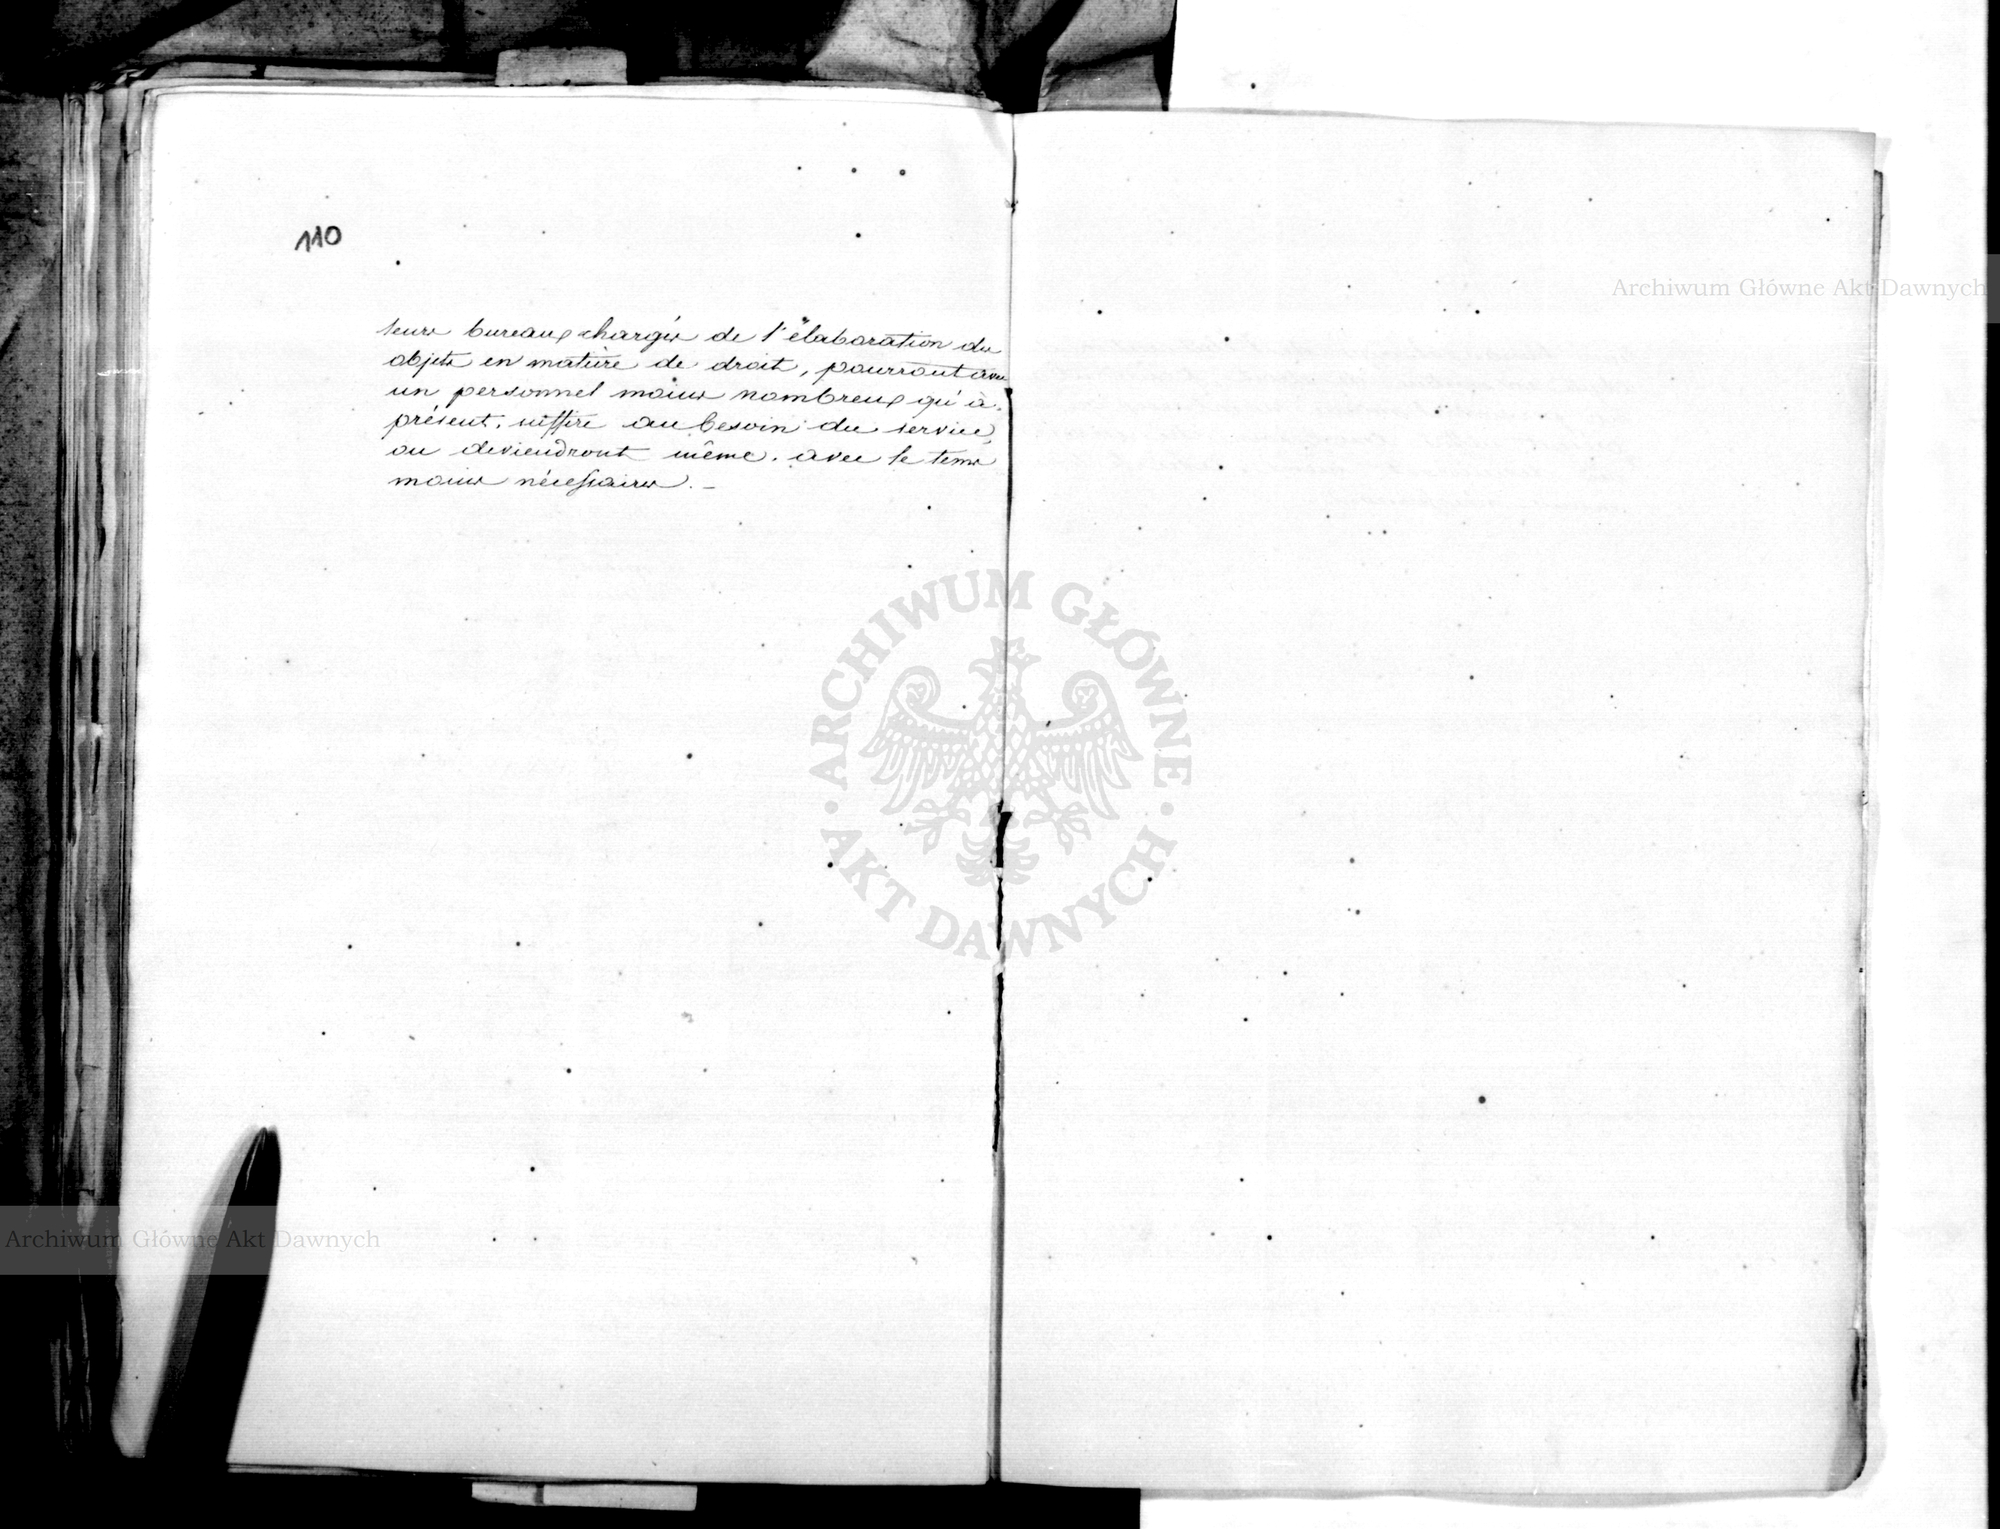 110
leurs bureaux chargés de l'élaboration des
objets en matière de droit, pourront avec
un personnel moins nombreux qu'à
présent, suffire au besoin du service,
ou deviendront même, avec le tems
moins nécessaires. —
Archiwum Główne Akt Dawnych
ARCHIWUM GŁÓWNE
AKT DAWNYCH
Archiwum Główne Akt Dawnych